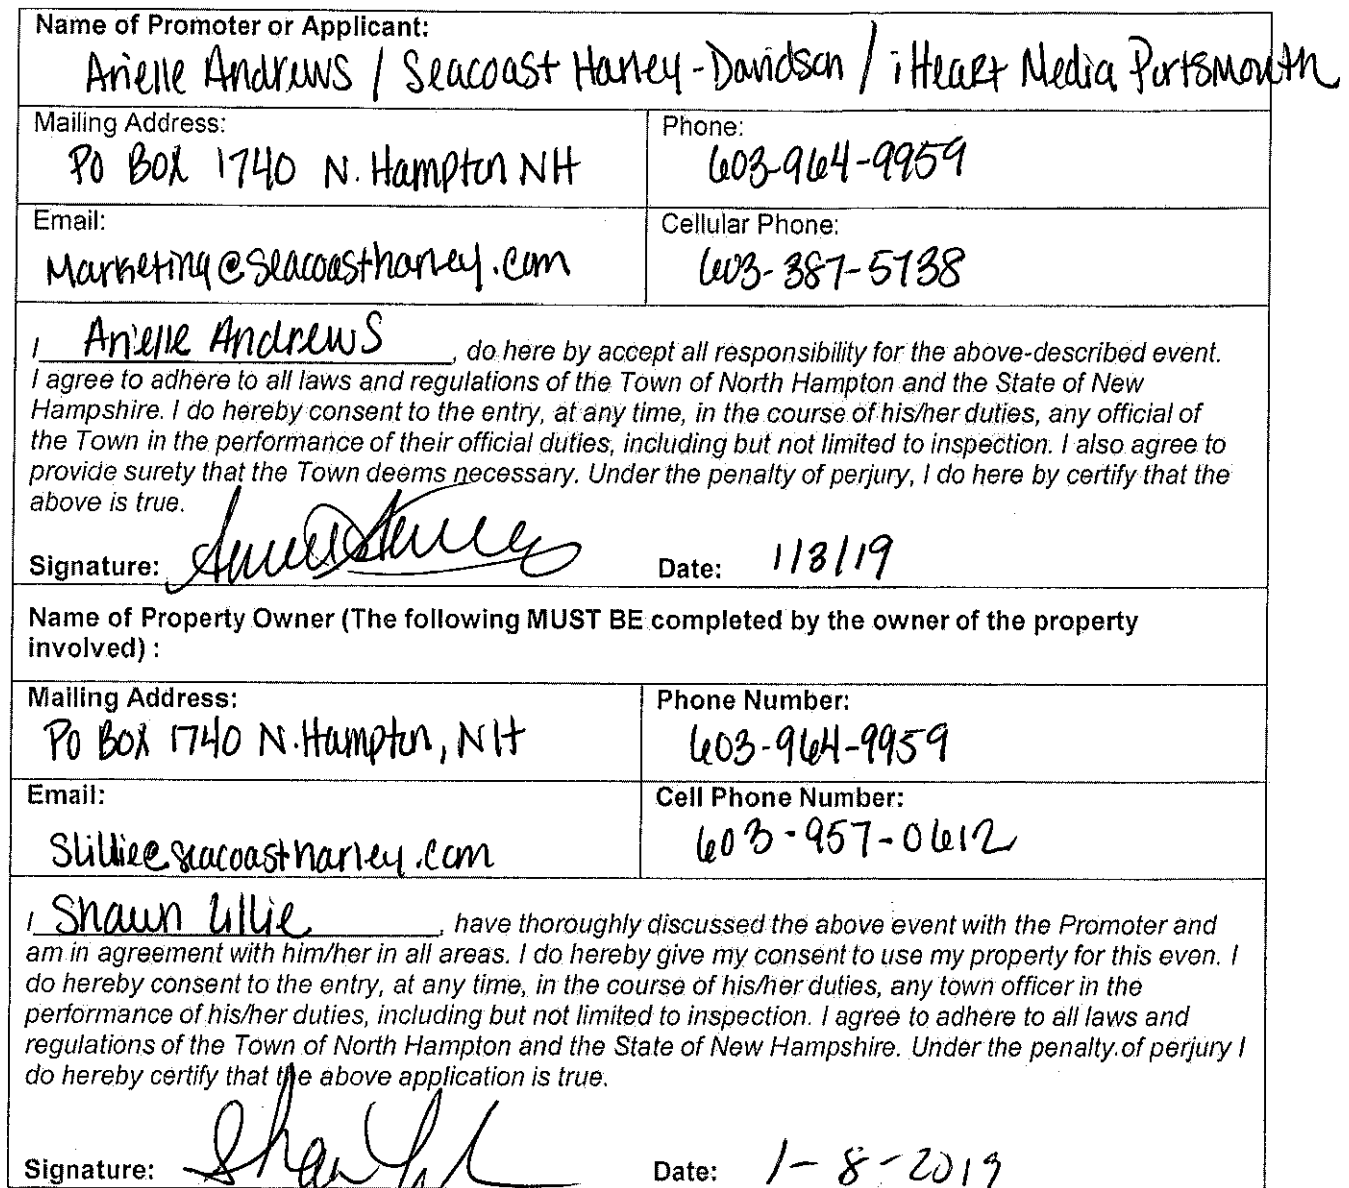 Name of Promoter or Applicant:
Arielle Andrews / Seacoast Harley-Davidson / iHeart Media Portsmouth
Mailing Address:
PO BOX 1740 N. Hampton NH
Phone:
603-964-9959
Email:
Marketing@seacoastharley.com
Cellular Phone:
603-387-5738
I Arielle Andrews, do here by accept all responsibility for the above-described event.
I agree to adhere to all laws and regulations of the Town of North Hampton and the State of New
Hampshire. I do hereby consent to the entry, at any time, in the course of his/her duties, any official of
the Town in the performance of their official duties, including but not limited to inspection. I also agree to
provide surety that the Town deems necessary. Under the penalty of perjury, I do here by certify that the
above is true.
Signature: Date: 1/8/19
Name of Property Owner (The following MUST BE completed by the owner of the property
involved) :
Mailing Address:
PO BOX 1740 N. Hampton, NH
Phone Number:
603-964-9959
Email:
Slillie@seacoastharley.com
Cell Phone Number:
603-957-0612
I Shawn Lillie, have thoroughly discussed the above event with the Promoter and
am in agreement with him/her in all areas. I do hereby give my consent to use my property for this even. I
do hereby consent to the entry, at any time, in the course of his/her duties, any town officer in the
performance of his/her duties, including but not limited to inspection. I agree to adhere to all laws and
regulations of the Town of North Hampton and the State of New Hampshire. Under the penalty of perjury I
do hereby certify that the above application is true.
Signature: Date: 1-8-2019